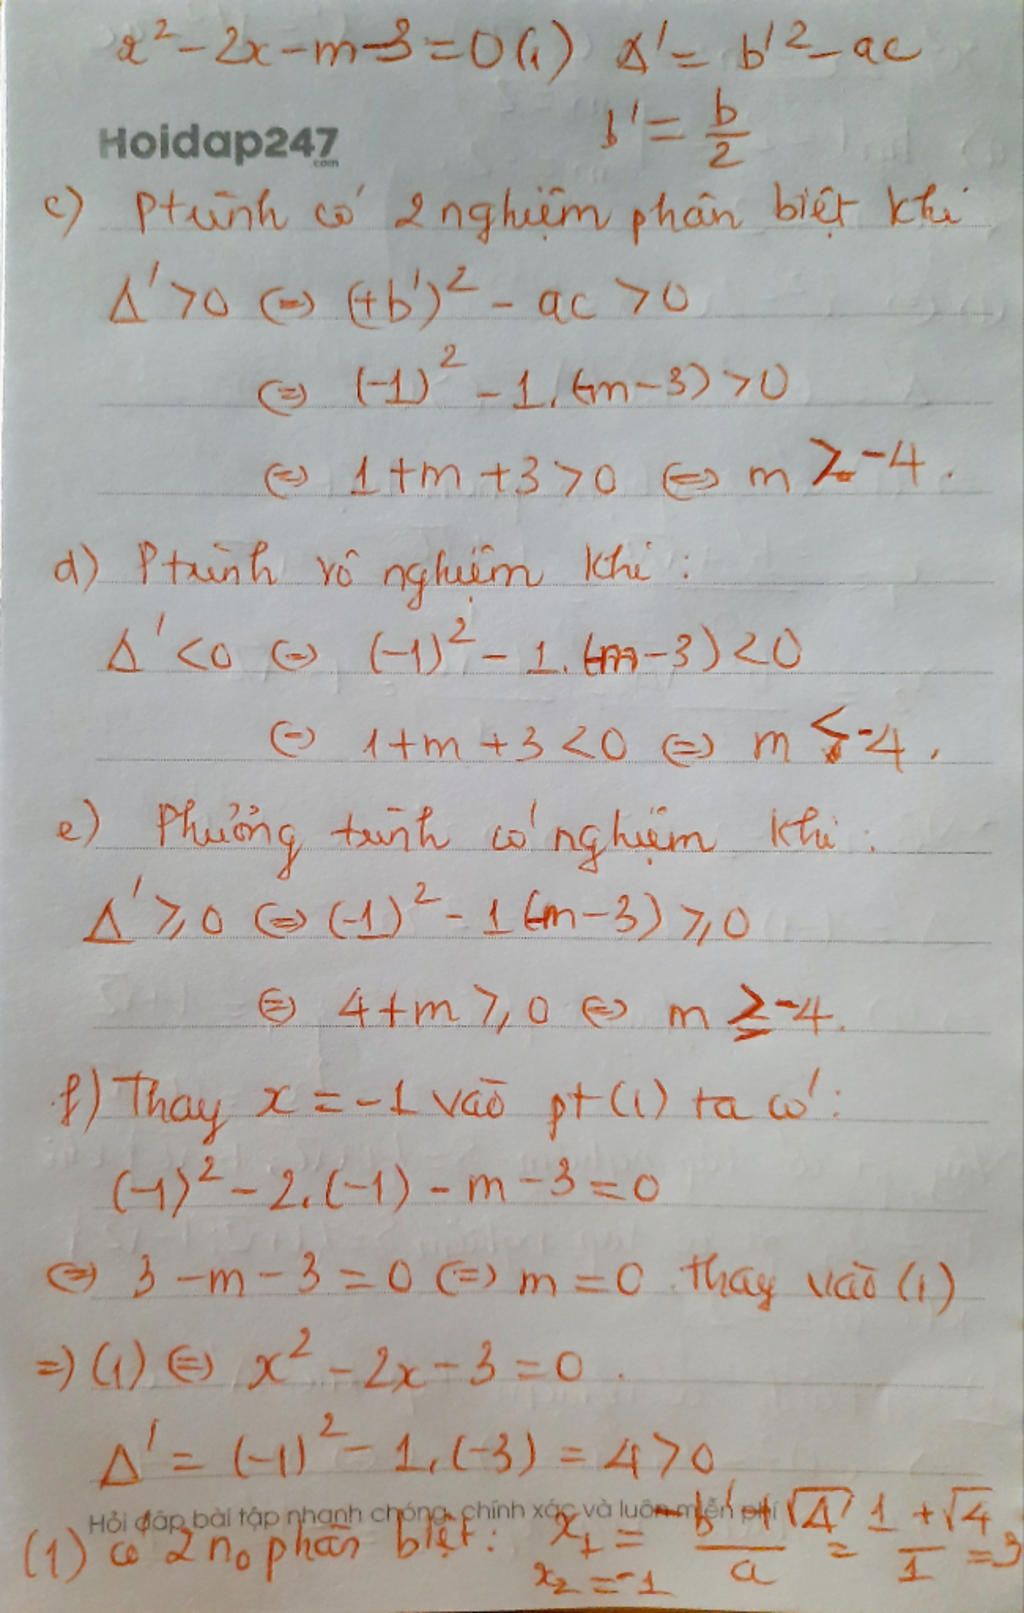 x² - 2x - m - 3 = 0 (1) Δ' = b'² - ac
b' = b/2
Hoidap247
.com
c) Ptrình có 2 nghiệm phân biệt khi
Δ' > 0 ⇔ (+b')² - ac > 0
⇔ (-1)² - 1.(-m-3) > 0
⇔ 1 + m + 3 > 0 ⇔ m > -4.
d) Ptrình vô nghiệm khi:
Δ' < 0 ⇔ (-1)² - 1.(-m-3) < 0
⇔ 1 + m + 3 < 0 ⇔ m < -4.
e) Phương trình có nghiệm khi:
Δ' ≥ 0 ⇔ (-1)² - 1(-m-3) ≥ 0
⇔ 4 + m ≥ 0 ⇔ m ≥ -4.
f) Thay x = -1 vào pt (1) ta có:
(-1)² - 2.(-1) - m - 3 = 0
⇔ 3 - m - 3 = 0 ⇔ m = 0 thay vào (1)
⇒ (1) ⇔ x² - 2x - 3 = 0.
Δ' = (-1)² - 1.(-3) = 4 > 0
Hỏi đáp bài tập nhanh chóng, chính xác và luôn miễn phí
(1) có 2 no phân biệt: x₁ = (-b' + √Δ')/a = (1 + √4)/1 = 3
x₂ = -1